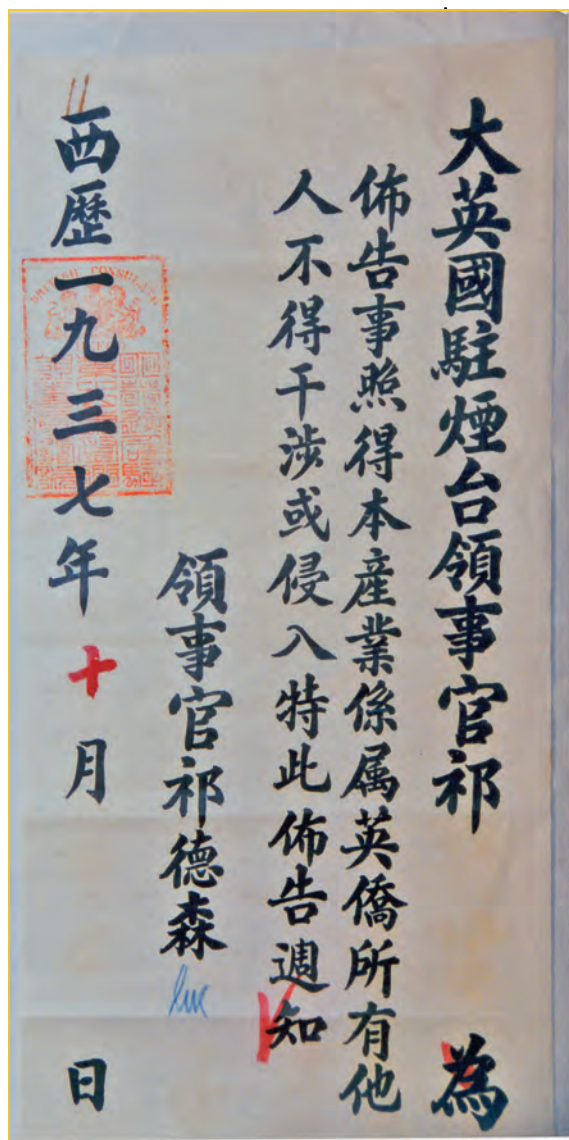 大英國駐煙台領事官祁 為
佈告事照得本産業係属英僑所有他
人不得干涉或侵入特此佈告週知
領事官祁德森
西歷一九三七年十月 日
BRITISH CONSULATE